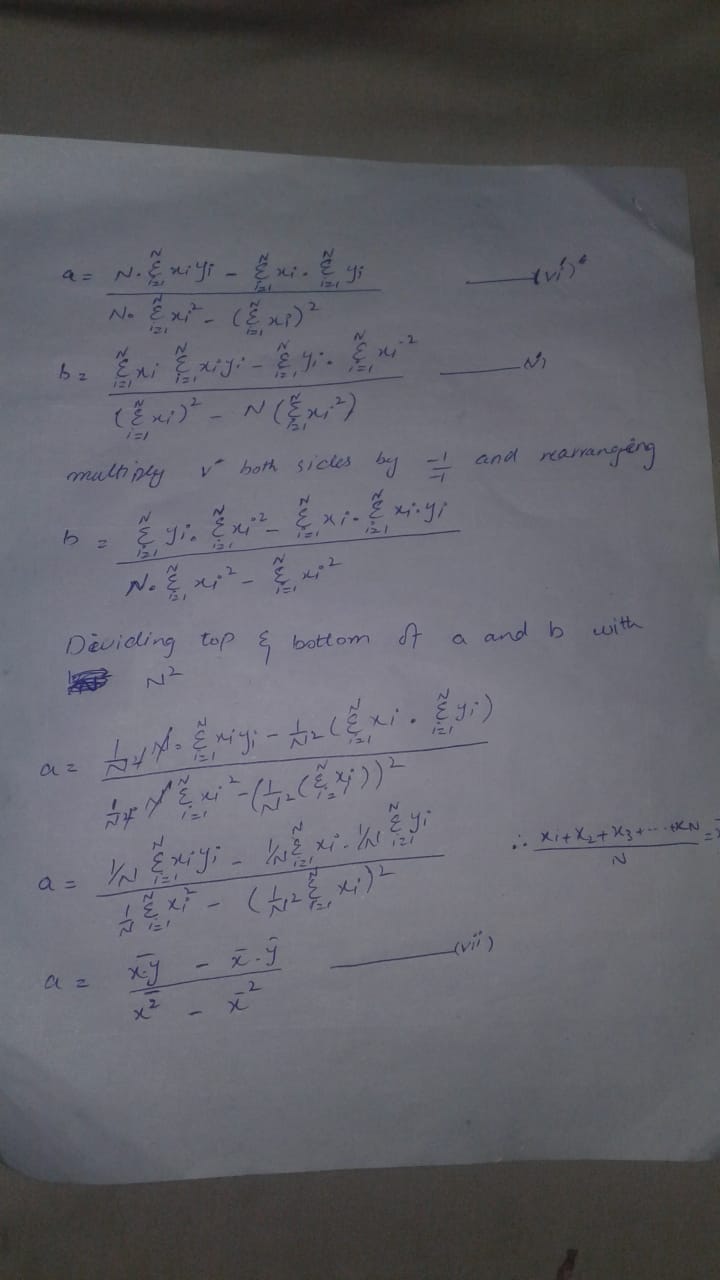 a = N·Σ_{i=1}^{N} xi yi - Σ_{i=1}^{N} xi · Σ_{i=1}^{N} yi / N· Σ_{i=1}^{N} xi² - (Σ_{i=1}^{N} xi)² —— (vi)
b = Σ_{i=1}^{N} xi Σ_{i=1}^{N} xi yi - Σ_{i=1}^{N} yi · Σ_{i=1}^{N} xi² / (Σ_{i=1}^{N} xi)² - N (Σ_{i=1}^{N} xi²) ——
multiply v both sides by -1/-1 and rearranging
b = Σ_{i=1}^{N} yi · Σ_{i=1}^{N} xi² - Σ_{i=1}^{N} xi · Σ_{i=1}^{N} xi · yi / N· Σ_{i=1}^{N} xi² - Σ_{i=1}^{N} xi²
Dividing top & bottom of a and b with
N²
a = 1/N² N· Σ_{i=1}^{N} xi yi - 1/N² (Σ_{i=1}^{N} xi · Σ_{i=1}^{N} yi) / 1/N² · N Σ_{i=1}^{N} xi² - (1/N² (Σ_{i=1}^{N} xi))²
a = 1/N Σ_{i=1}^{N} xi yi - 1/N Σ_{i=1}^{N} xi · 1/N Σ_{i=1}^{N} yi / 1/N Σ_{i=1}^{N} xi² - (1/N² Σ_{i=1}^{N} xi)² ∴ x1+x2+x3+----+xN / N =
a = x̄.ȳ - x̄.ȳ / x̄² - x̄² —— (vii)